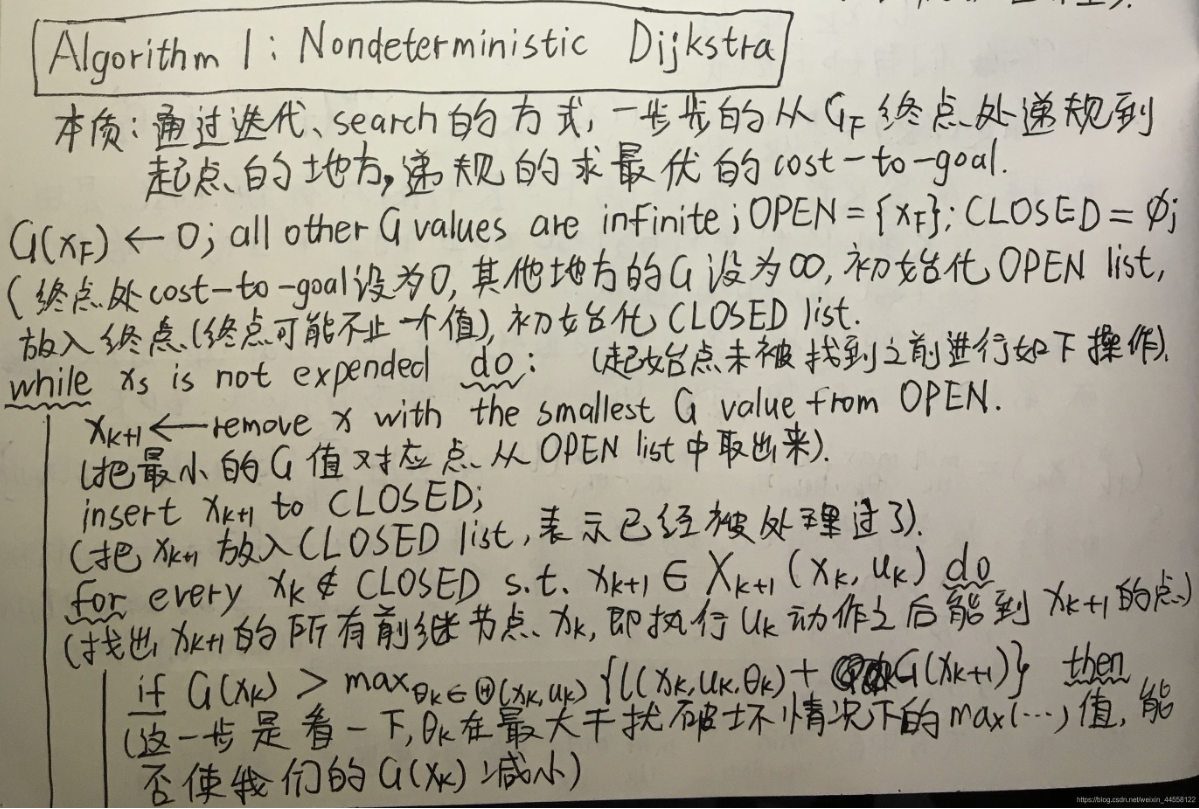 Algorithm 1: Nondeterministic Dijkstra
本质:通过迭代、search的方式,一步步的从GF终点处递规到
起点的地方,递规的求最优的cost-to-goal.
G(xF) ← 0; all other G values are infinite; OPEN = {xF}; CLOSED = ∅;
(终点处cost-to-goal设为0,其他地方的G设为∞,初始化OPEN list,
放入终点(终点可能不止一个值),初始化CLOSED list.
while xs is not expended do: (起始点未被找到之前进行如下操作).
xk+1 ← remove x with the smallest G value from OPEN.
(把最小的G值对应点从OPEN list中取出来).
insert xk+1 to CLOSED;
(把xk+1放入CLOSED list,表示已经被处理过了).
for every xk ∉ CLOSED s.t. xk+1 ∈ Xk+1(xk, uk) do
(找出xk+1的所有前继节点xk,即执行uk动作之后能到xk+1的点)
if G(xk) > maxθk∈Θ(xk,uk) {l(xk,uk,θk) + G(xk+1)} then
(这一步是看一下,θk在最大干扰破坏情况下的max(…)值,能
否使我们的G(xk)减小)
https://blog.csdn.net/weixin_44558122